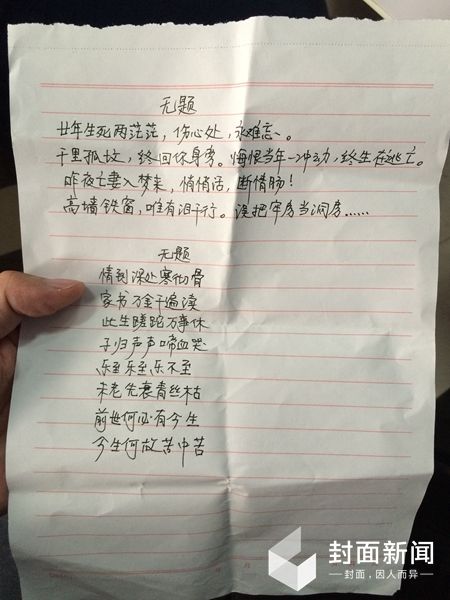 无题
廿年生死两茫茫，伤心处，永难忘。
千里孤坟，终回你身旁。悔恨当年一冲动，终生在逃亡。
昨夜亡妻入梦来，悄悄话，断情肠！
高墙铁窗，唯有泪千行。漫把牢房当洞房……
无题
情到深处寒彻骨
家书万金千遍读
此生蹉跎万事休
子归声声啼血哭
乐至乐至乐不至
未老先衰青丝枯
前世何必有今生
今生何故苦中苦
封面新闻
封面，因人而异